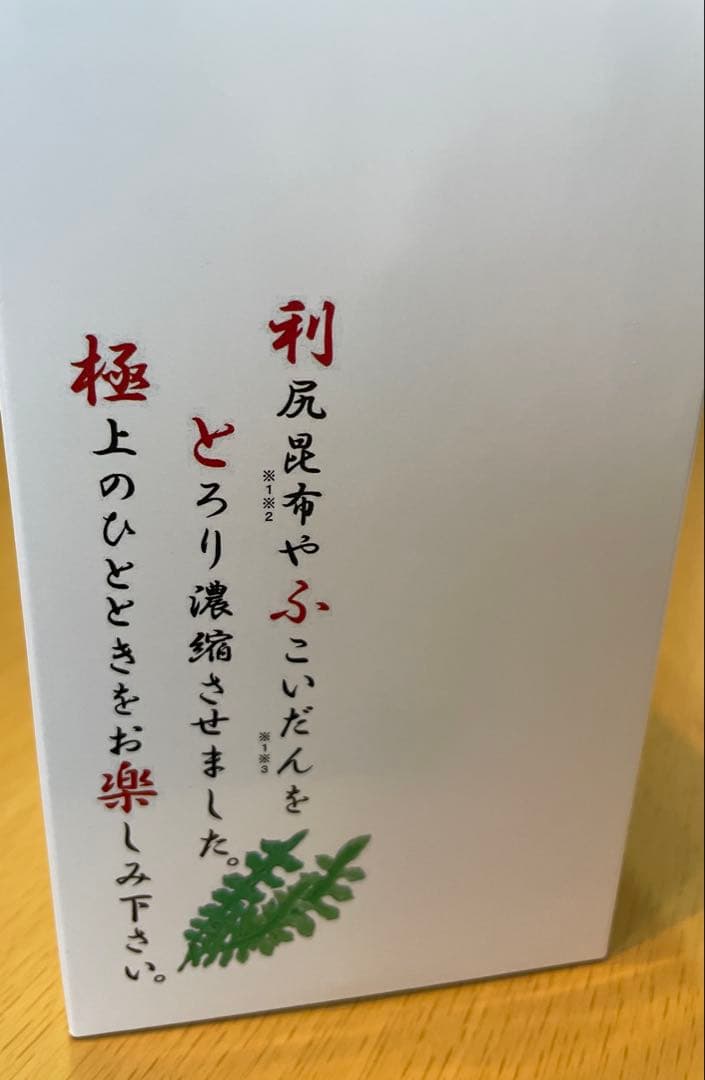 利尻昆布やふこいだんを
※1※2
※1※3
とろり濃縮させました。
極上のひとときをお楽しみ下さい。